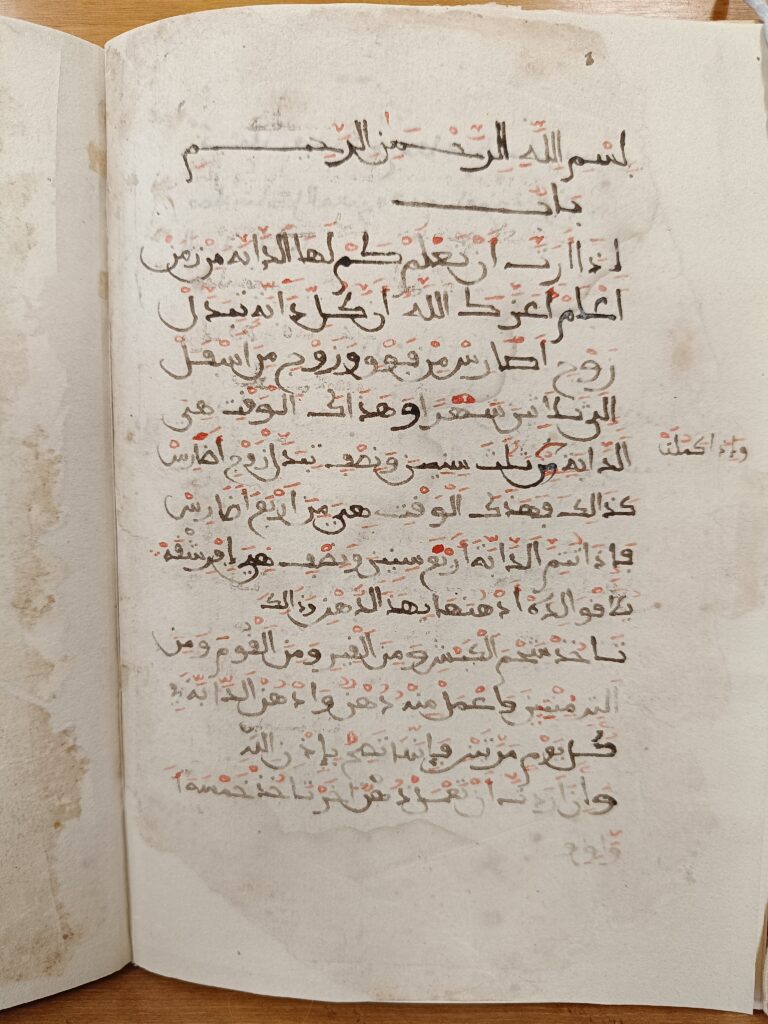 بسم الله الرحمن الرحيم
باب
اذا اردت ان تعلم كم لها الدابه من زمن
اعلم اعزك الله ان كل دابه تبدل
زوج اضارس من فوق وزوج من اسفل
الى ثلاثين شهرا وهذاك الوقت هي
الدابة من ثلث سنين ونصف تبدل زوج اضارس
واذا كملت
كذالك فهذك الوقت هي من اربع اضارس
فإذا تتم الدابة اربع سنين ونصف هي
ادهنها بهذ الدهن وذالك
تاخذ شحم الكبش ومن القير ومن الثوم ومن
فاعمل منه دهن وادهن الدابة
كل يوم مرتين فإنها تصح بإذن الله
وإذا اردت ان تعمل دهن اخر تاخذ خمسة